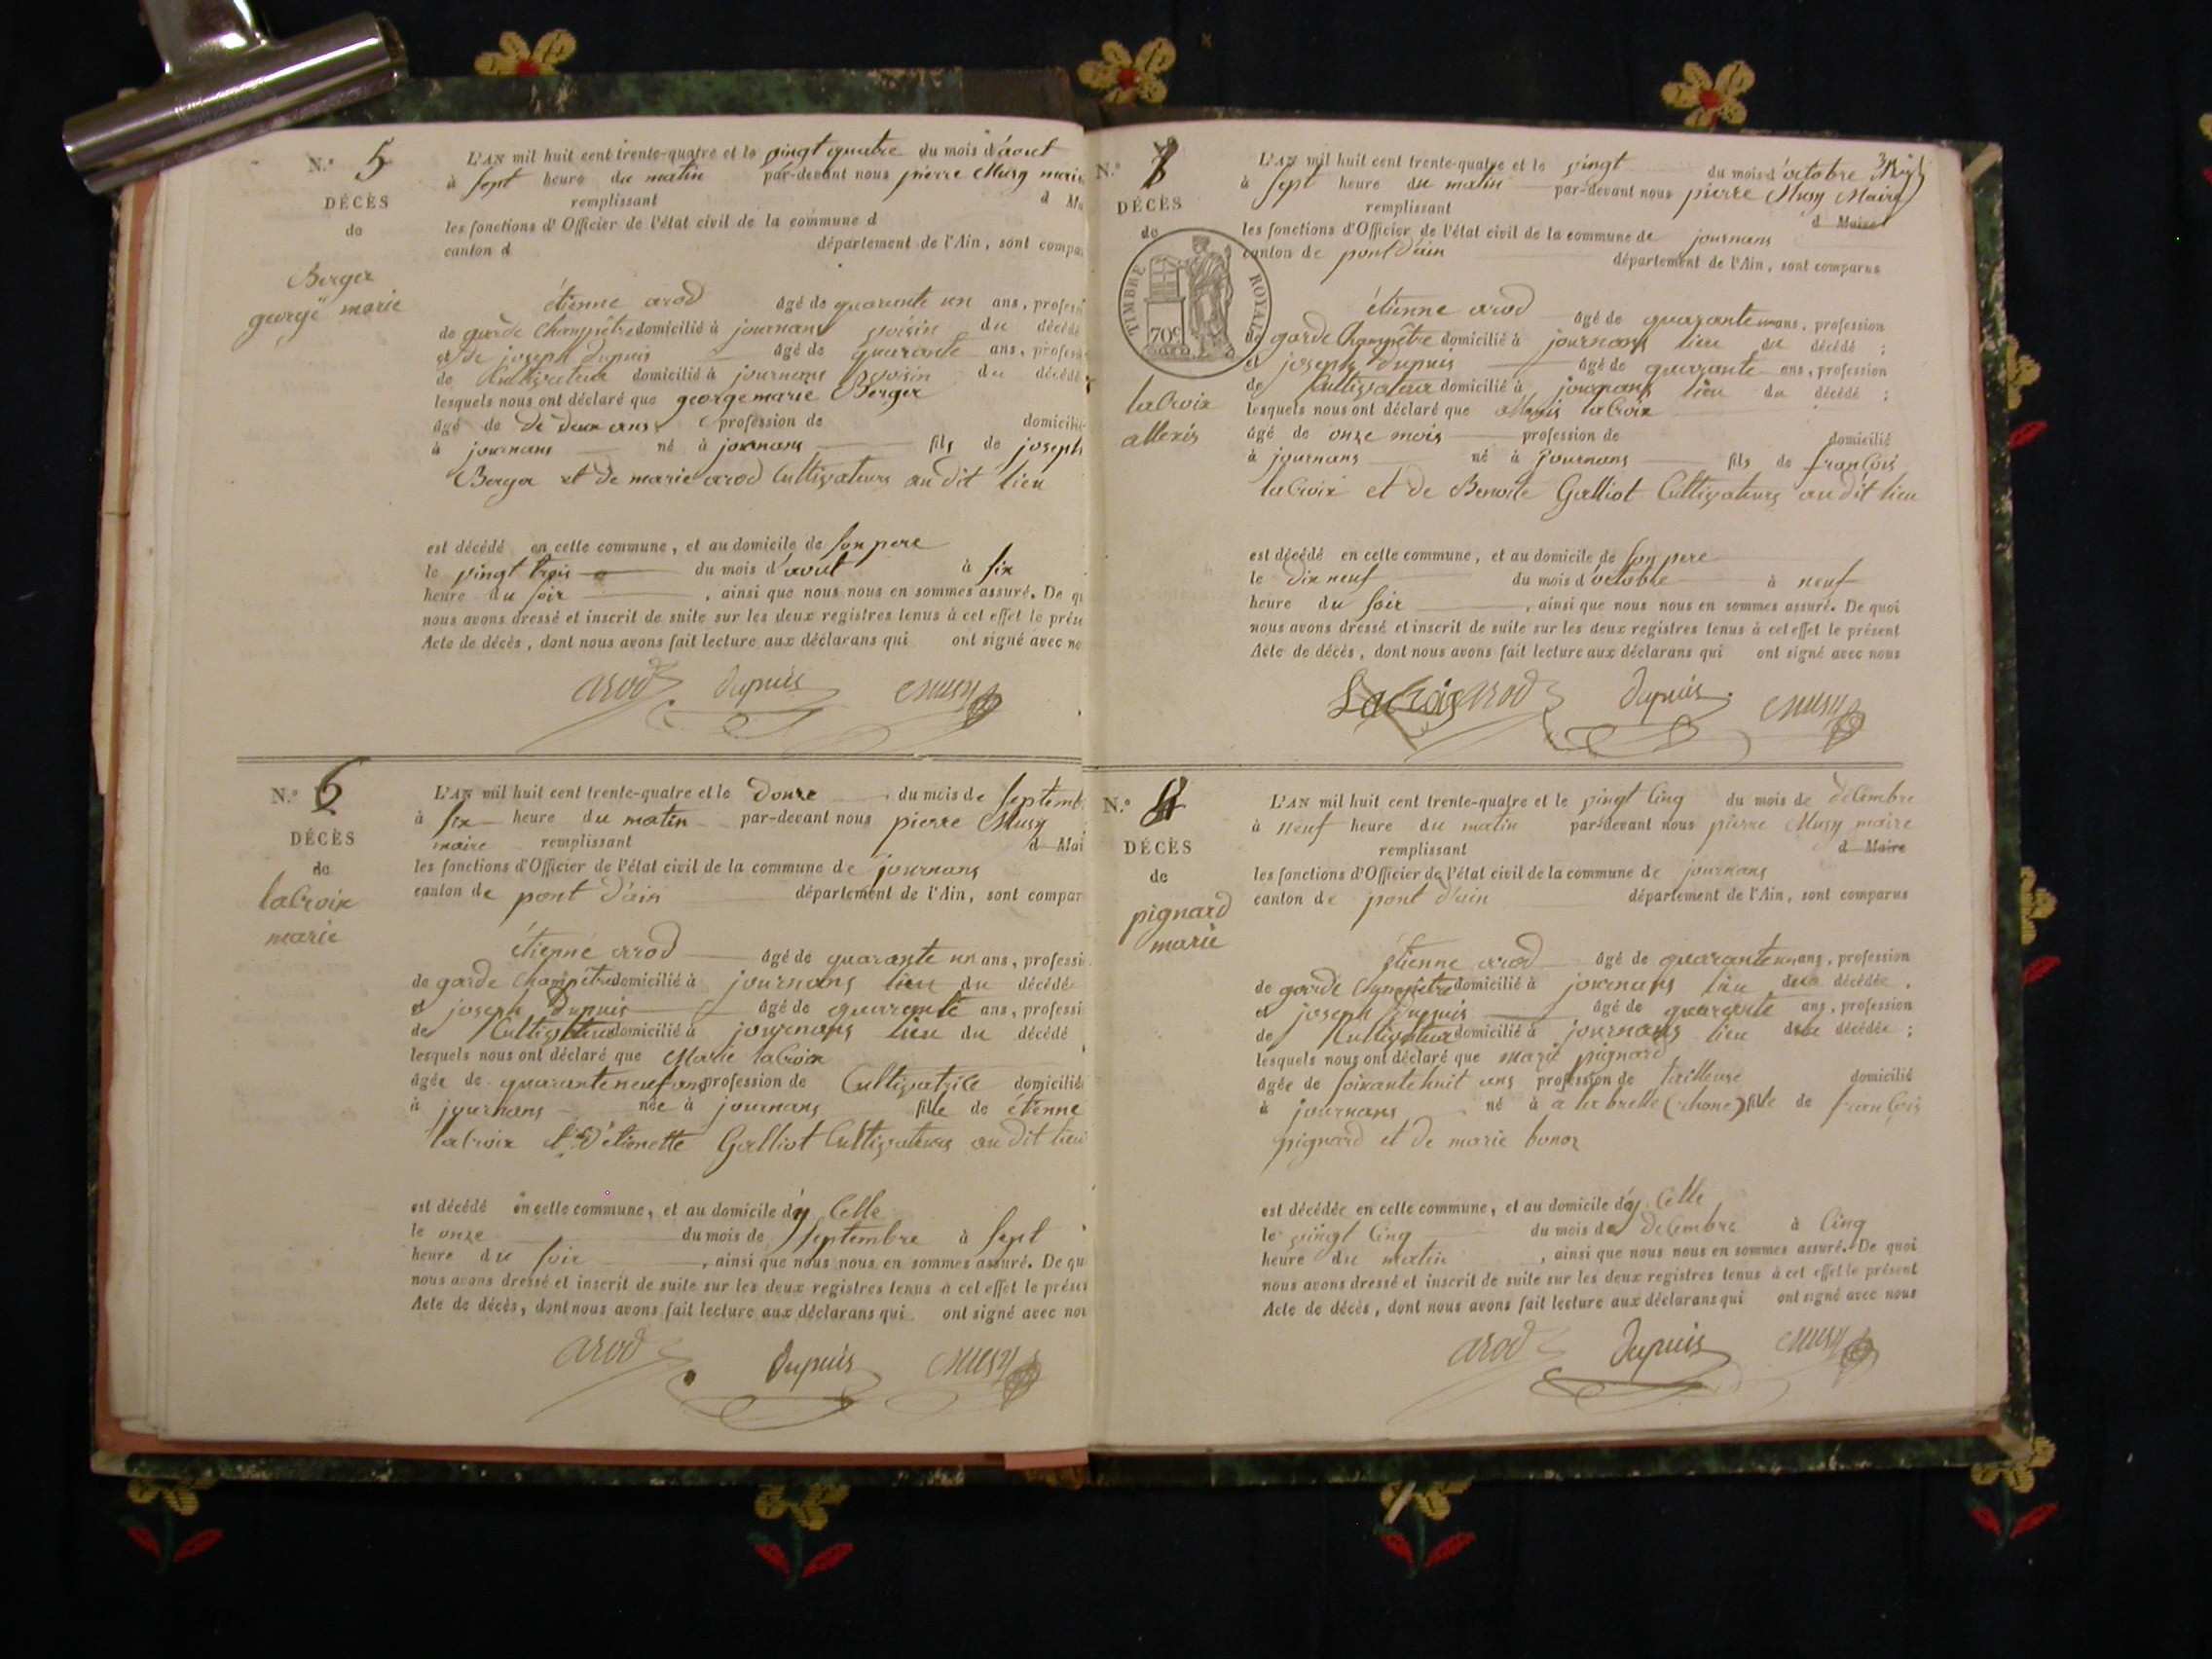 N.° 5
DÉCÈS
de
Berger
george marie
L'AN mil huit cent trente-quatre et le vingt quatre du mois d'aout
à sept heure du matin par-devant nous pierre Musy maire
remplissant d Ma
les fonctions d'Officier de l'état civil de la commune d
canton d département de l'Ain, sont compa
étienne arod âgé de quarante un ans, profess
de garde Champêtre domicilié à journans voisin du décédé
et de joseph Dupuis âgé de quarante ans, profess
de Cultivateur domicilié à journans voisin du décédé
lesquels nous ont déclaré que george marie Berger
âgé de de deux ans profession de domicilié
à journans né à journans fils de joseph
Berger et de marie arod Cultivateurs au dit lieu
est décédé en cette commune, et au domicile de son pere
le vingt trois du mois d'aout à six
heure du soir , ainsi que nous nous en sommes assuré. De qu
nous avons dressé et inscrit de suite sur les deux registres tenus à cet effet le prése
Acte de décès, dont nous avons fait lecture aux déclarans qui ont signé avec no
arod dupuis Musy
N.° 6
DÉCÈS
de
laCroix
marie
L'AN mil huit cent trente-quatre et le Douze du mois de Septemb
à six heure du matin par-devant nous pierre Musy
maire remplissant d Mai
les fonctions d'Officier de l'état civil de la commune de journans
canton de pont d'ain département de l'Ain, sont compar
étienne arod âgé de quarante un ans, professi
de garde Champêtre domicilié à journans lieu du décédé
et joseph Dupuis âgé de quarente ans, professi
de Cultivateur domicilié à journans lieu du décédé
lesquels nous ont déclaré que Marie laCroix
âgée de quarante neuf ans profession de Cultivatrice domicilié
à journans née à journans fille de étienne
laCroix et D'étienette Galliot Cultivateurs au dit lieu
est décédé en cette commune, et au domicile d'y Celle
le onze du mois de septembre à sept
heure du soir , ainsi que nous nous en sommes assuré. De qu
nous avons dressé et inscrit de suite sur les deux registres tenus à cet effet le prése
Acte de décès, dont nous avons fait lecture aux déclarans qui ont signé avec nou
arod dupuis Musy
N.° 7
DÉCÈS
de
TIMBRE ROYAL
70c
laCroix
allexis
L'AN mil huit cent trente-quatre et le vingt du mois d'octobre
à sept heure du matin par-devant nous pierre Musy Maire
remplissant d Maire
les fonctions d'Officier de l'état civil de la commune de journans
canton de pont d'ain département de l'Ain, sont comparus
étienne arod âgé de quarante un ans, profession
de garde Champêtre domicilié à journans lieu du décédé ;
et joseph Dupuis âgé de quarante ans, profession
de Cultivateur domicilié à journans lieu du décédé ;
lesquels nous ont déclaré que allexis laCroix
âgé de onze mois profession de domicilié
à journans né à journans fils de françois
laCroix et de Benoite Galliot Cultivateurs au dit lieu
est décédé en cette commune, et au domicile de son pere
le dix neuf du mois d'octobre à neuf
heure du soir , ainsi que nous nous en sommes assuré. De quoi
nous avons dressé et inscrit de suite sur les deux registres tenus à cet effet le présent
Acte de décès, dont nous avons fait lecture aux déclarans qui ont signé avec nous
LaCroix arod dupuis Musy
N.°
DÉCÈS
de
pignard
marie
L'AN mil huit cent trente-quatre et le vingt Cinq du mois de décembre
à neuf heure du matin par-devant nous pierre Musy maire
remplissant d Maire
les fonctions d'Officier de l'état civil de la commune de journans
canton de pont d'ain département de l'Ain, sont comparus
étienne arod âgé de quarante un ans, profession
de garde Champêtre domicilié à journans lieu de la décédée,
et joseph Dupuis âgé de quarente ans, profession
de Cultivateur domicilié à journans lieu de la décédée ;
lesquels nous ont déclaré que marie pignard
âgée de soixante huit ans profession de tailleuse domicilié
à journans né à a labrelle (rhone) fille de françois
pignard et de marie bonoz
est décédée en cette commune, et au domicile d'y Celle
le vingt Cinq du mois de décembre à Cinq
heure du matin , ainsi que nous nous en sommes assuré. De quoi
nous avons dressé et inscrit de suite sur les deux registres tenus à cet effet le présent
Acte de décès, dont nous avons fait lecture aux déclarans qui ont signé avec nous
arod dupuis Musy